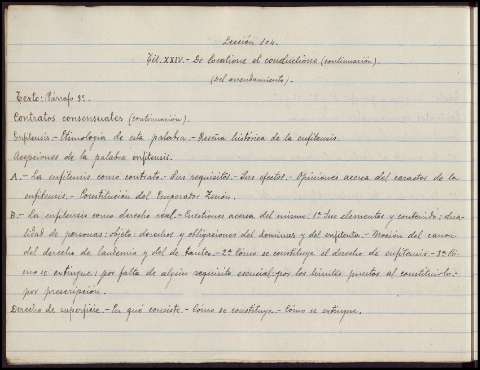 Lección 104.
Tít. XXIV.- De locatione et conductione (continuación).
(Del arrendamiento).
Texto: Párrafo 3º.
Contratos consensuales (continuación).
Enfiteusis.- Etimología de esta palabra.- Reseña histórica de la enfiteusis.
Acepciones de la palabra enfiteusis.
A.- La enfiteusis como contrato.- Sus requisitos.- Sus efectos.- Opiniones acerca del carácter de la
enfiteusis.- Constitución del Emperador Zenón.
B.- La enfiteusis como derecho real.- Cuestiones acerca del mismo: 1ª Sus elementos y contenido: Cua-
lidad de personas: objeto: derechos y obligaciones del dominus y del enfiteuta.- Noción del canon
del derecho de laudemio y del de tanteo.- 2ª Como se constituye el derecho de enfiteusis.- 3ª Có-
mo se extingue: por falta de algún requisito esencial: por los límites puestos al constituirlo:-
por prescripción.
Derecho de superficie.- En qué consiste.- Como se constituye.- Cómo se extingue.